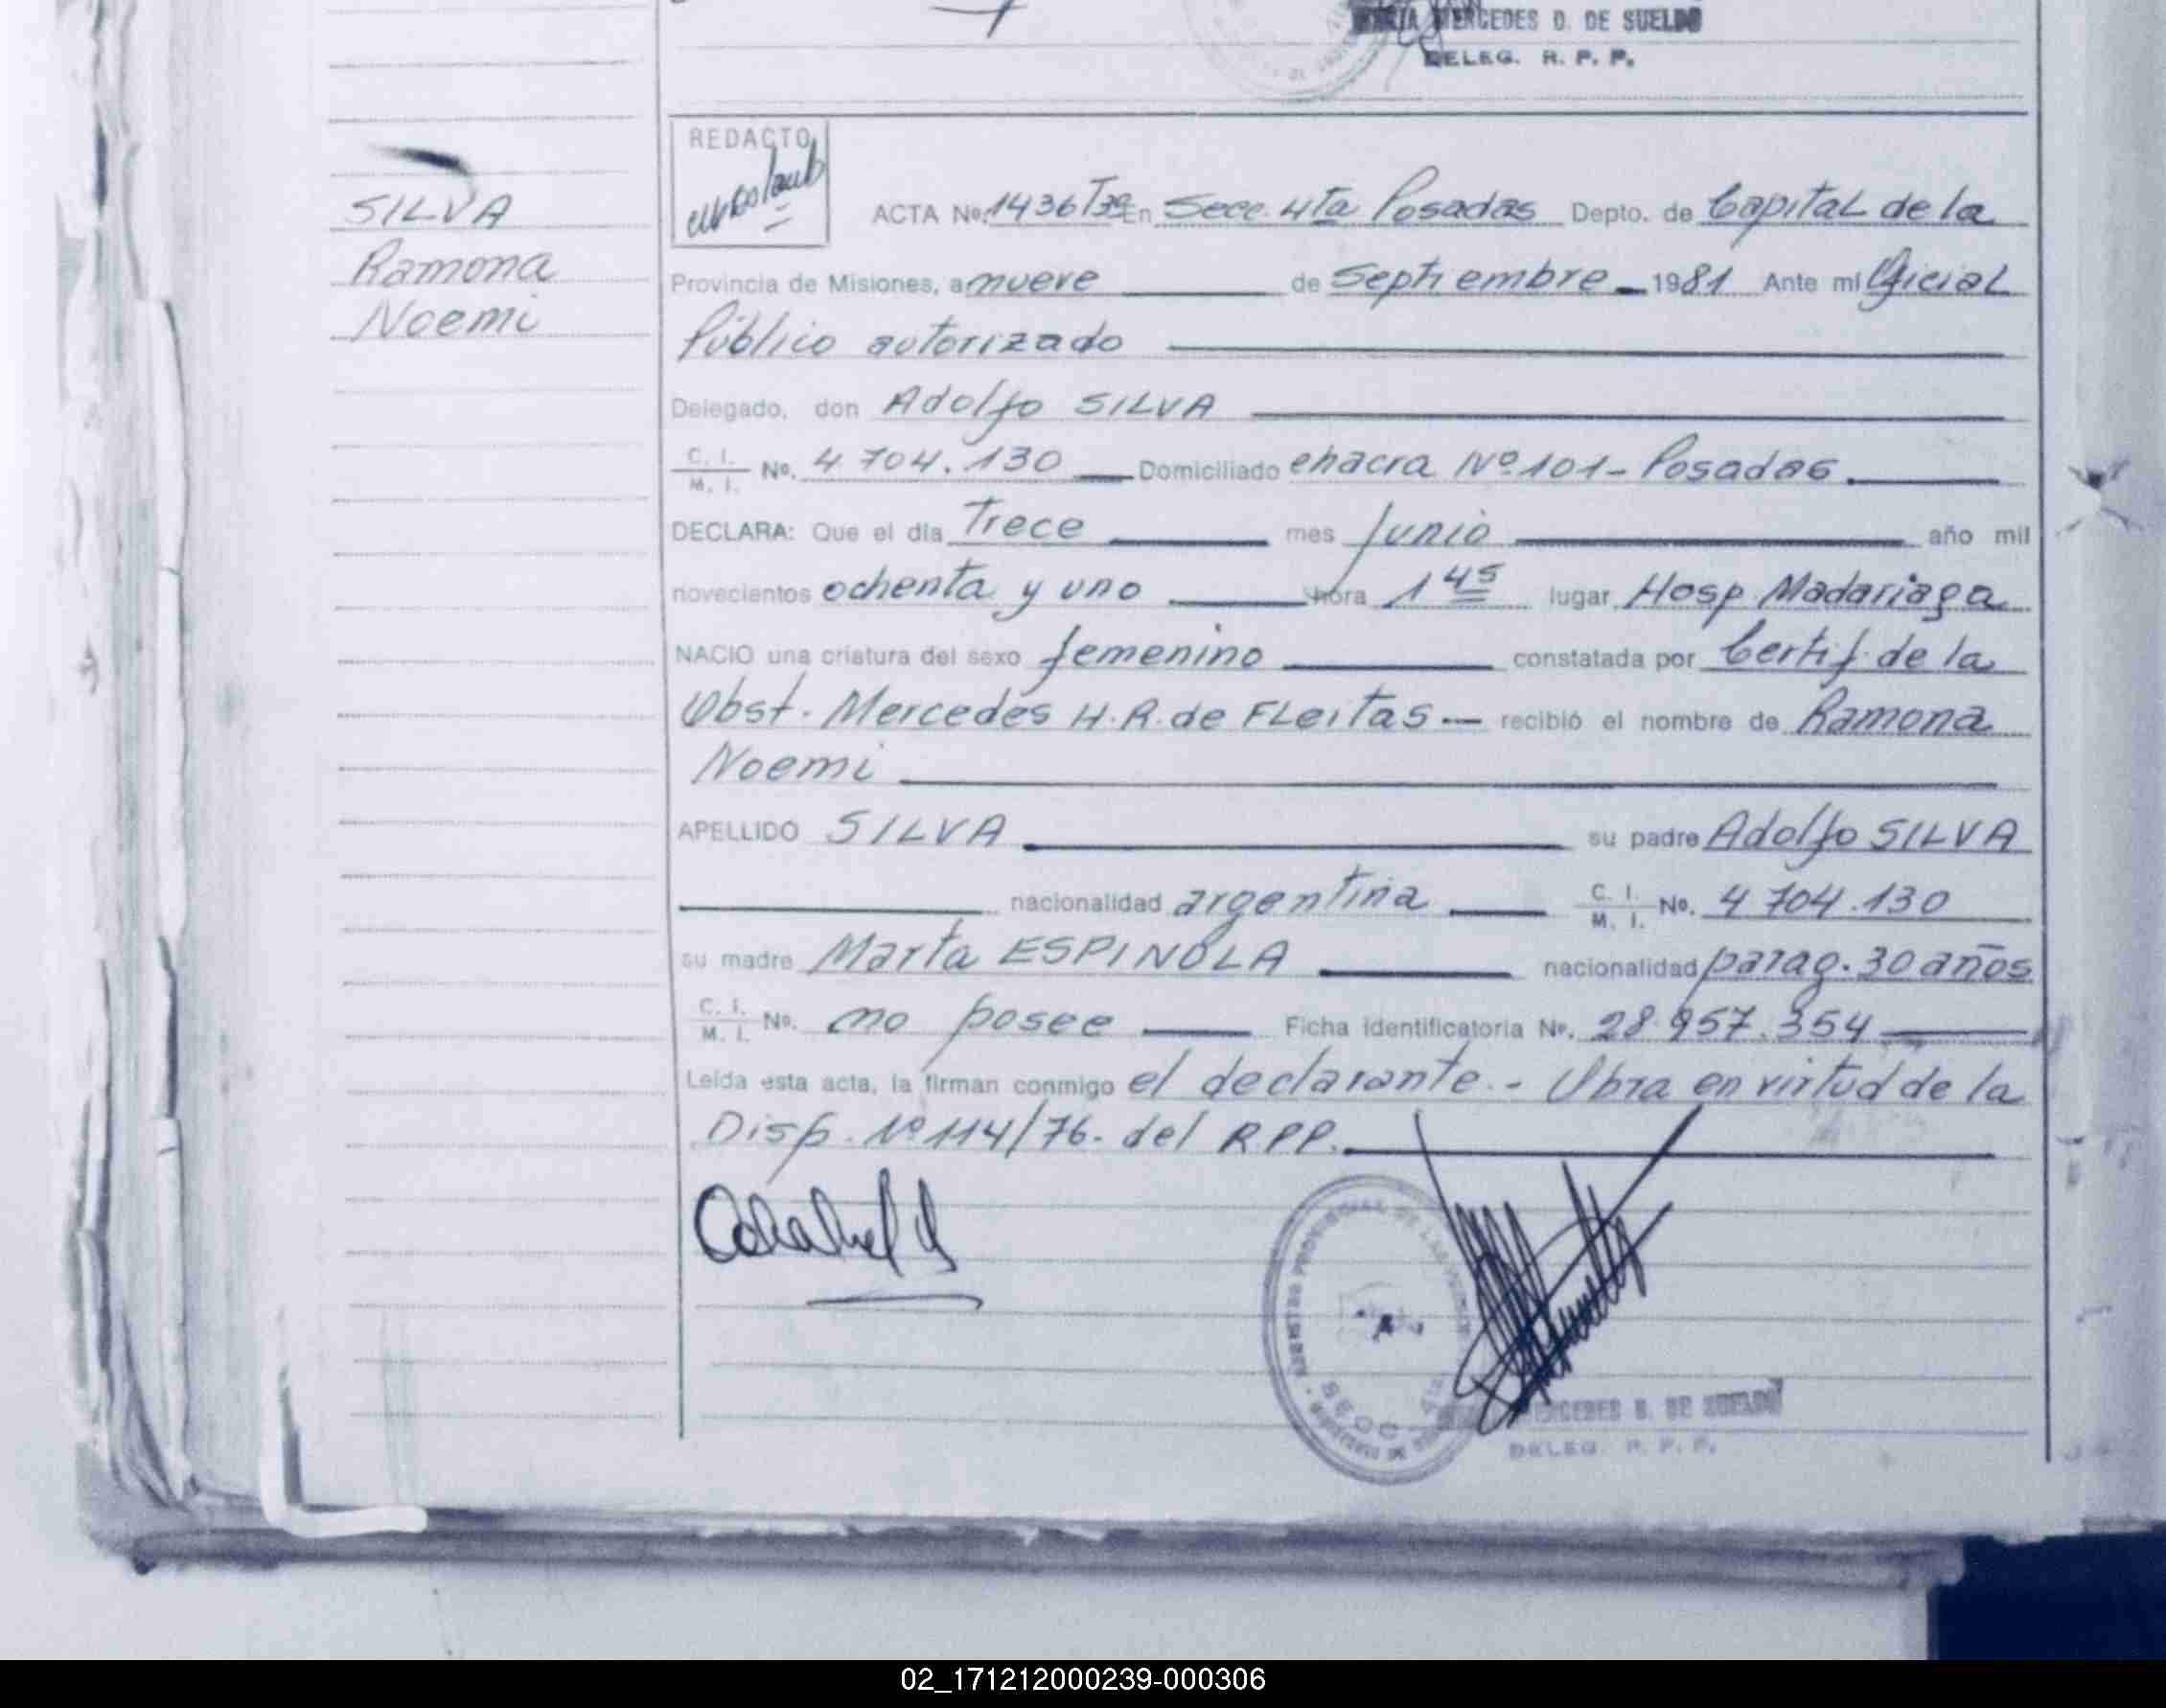 MERCEDES D. DE SUELDO
DELEG. R. P. P.
SILVA
Ramona
Noemi
REDACTO
ACTA No. 1436 T 39 En Secc. 4ta Posadas Depto. de Capital de la
Provincia de Misiones, a nueve de Septiembre 1981 Ante mi Oficial
Público autorizado
Delegado, don Adolfo SILVA
C. I. / M. I. No. 4.704.130 Domiciliado chacra Nº 101 - Posadas
DECLARA: Que el día Trece mes Junio año mil
novecientos ochenta y uno hora 1 45 lugar Hosp Madariaga
NACIO una criatura del sexo femenino constatada por Certif. de la
Obst. Mercedes H. R. de FLeitas - recibió el nombre de Ramona
Noemi
APELLIDO SILVA su padre Adolfo SILVA
nacionalidad argentina C. I. / M. I. No. 4.704.130
su madre Marta ESPINOLA nacionalidad parag. 30 años
C. I. / M. I. No. no posee Ficha identificatoria No. 28.957.354
Leída esta acta, la firman conmigo el declarante.- Obra en virtud de la
Disp. Nº 114/76. del RPP.
SECC. 4ta
MERCEDES D. DE SUELDO
DELEG. R. P. P.
02_171212000239-000306